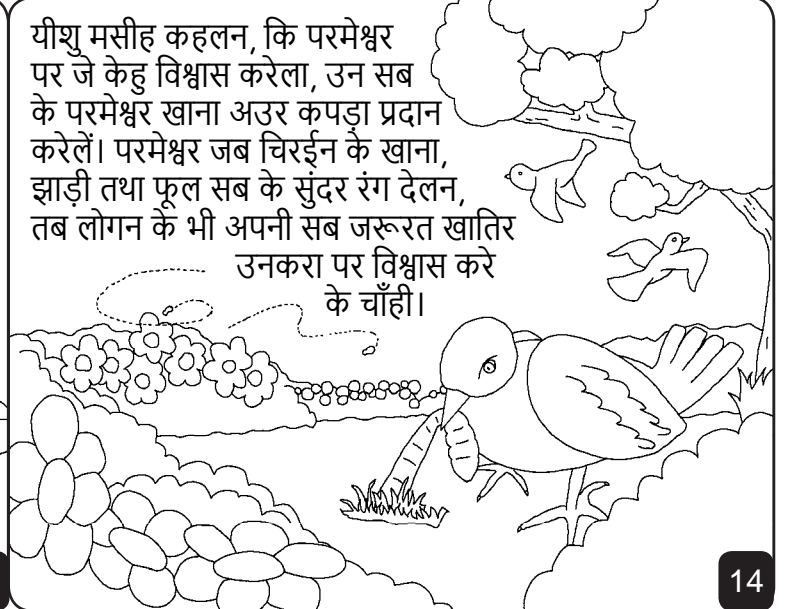 यीशु मसीह कहलन, कि परमेश्वर
पर जे केहु विश्वास करेला, उन सब
के परमेश्वर खाना अउर कपड़ा प्रदान
करेलें। परमेश्वर जब चिरईन के खाना,
झाड़ी तथा फूल सब के सुंदर रंग देलन,
तब लोगन के भी अपनी सब जरूरत खातिर
उनकरा पर विश्वास करे
के चाँही।
14